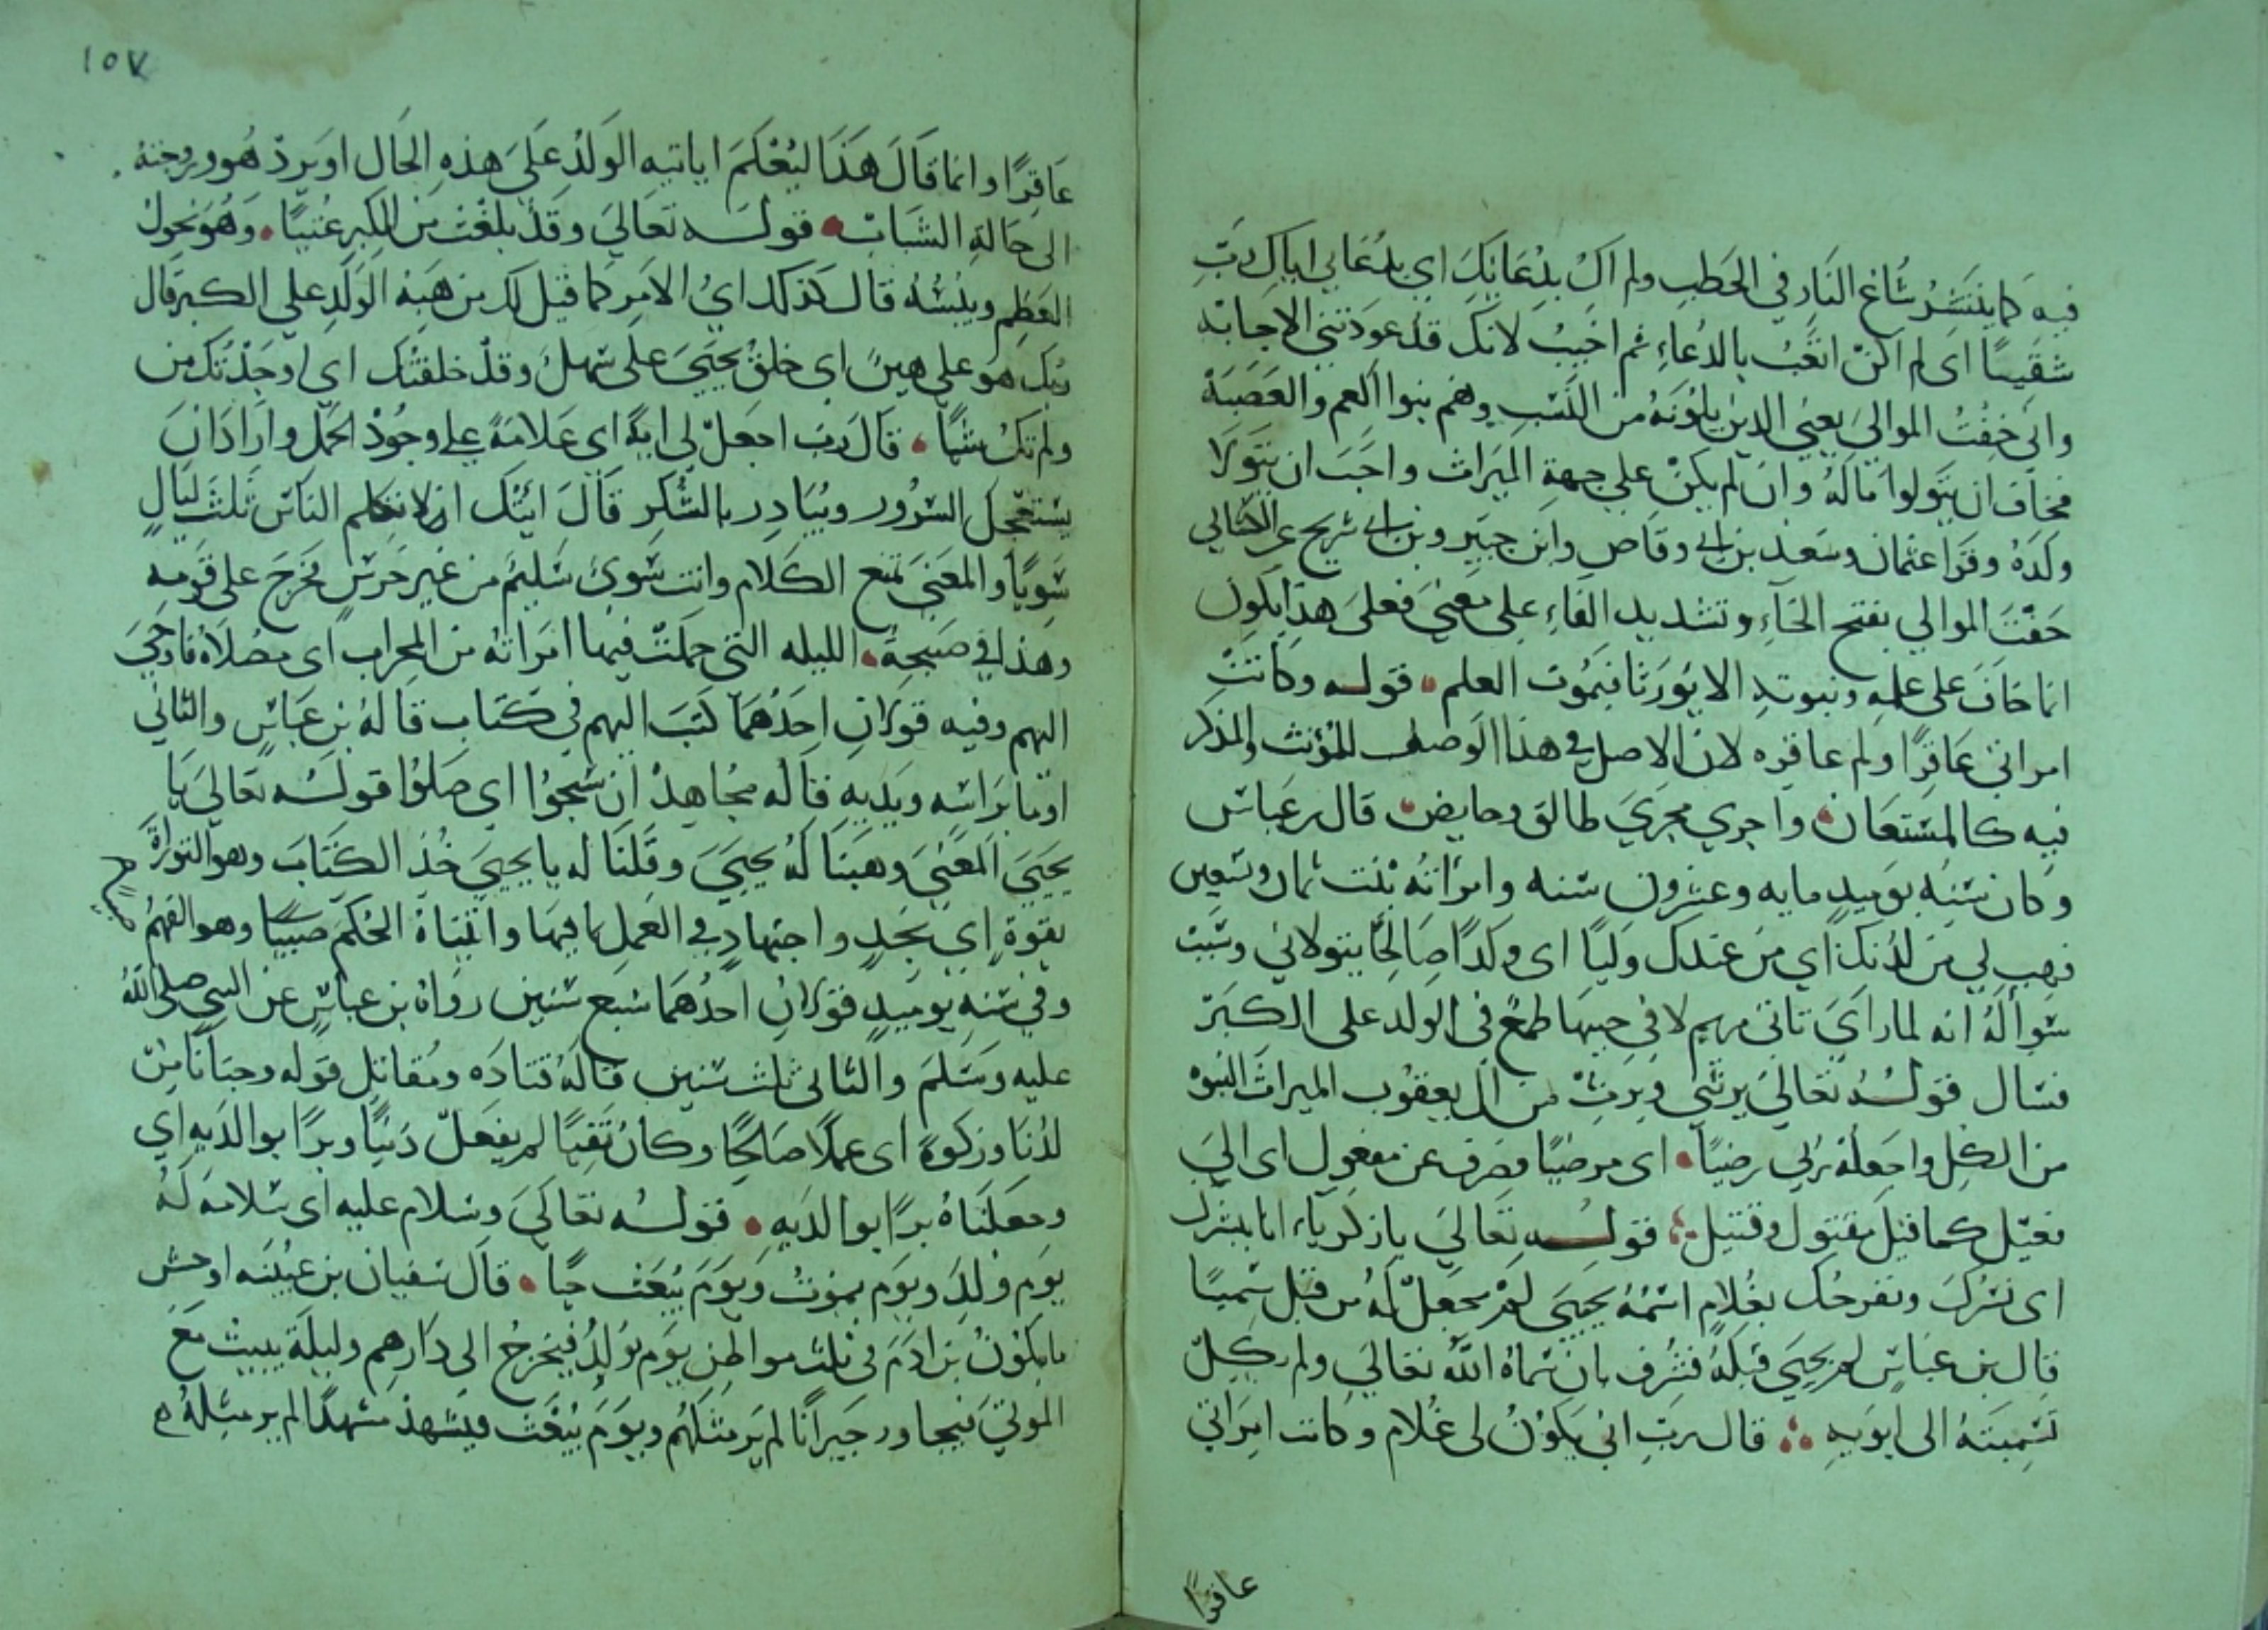 فيه كما ينتشر شاغ النار في الحطب ولم اك بدعائك اي بدعائي اياك رب
شقيا اى لم اكن اتعب بالدعاء ثم اخيب لانك قد عودتني الاجابه
واني خفت الموالي يعني الدين يلونه من النسب وهم بنوا العم والعصبة
فخاف ان يتولوا ماله وان لم يكن علي جهة الميراث واحب ان يتولا
ولده وقرا عثمان وسعد بن ابى وقاص وابن جبير وبن ابى شريح عن الكسائي
خفت الموالي بفتح الخاء وتشديد الفاء على معنى فعلى هذا يكون
انما خاف على علمه ونبوته الا يورثا فيموت العلم قوله وكانت
امراتي عاقرا ولم عاقره لان الاصل في هذا الوصف للمؤنث والمذكر
فيه كالمستعان واجري مجري طالق وحايض قال بن عباس
وكان سنه يوميد مايه وعشرون سنه وامراته بنت ثمان وتسعين
فهب لي من لدنك اي من عندك وليا اى ولدا صالحا يتولاني وسبب
سواله انه لما راى تاتي مريم لا في حينها طمع في الولد على الكبر
فسال قوله تعالي يرثني ويرث من ال يعقوب الميراث النبوه
من الكل واجعله رب رضيا اى مرضيا فصرف عن مفعول اى الي
فعيل كما قيل مقتول وقتيل قوله تعالي يا زكرياء انا نبشرك
اى نسرك ونفرحك بغلام اسمه يحيى لم نجعل له من قبل سميا
قال بن عباس لم يحيى قبله فشرف بان سماه الله تعالي ولم يكل
تسميته الى ابويه قال رب اني يكون لي غلام وكانت امراتي
عاقرا
١٥٧
عاقرا وانما قال هذا ليعلم اياتيه الولد على هذه الحال او يرد هو وزوجته
الى حالة الشباب قوله تعالي وقد بلغت من الكبر عتيا وهو نحول
العظم ويبسه قال كذلك اي الامر كما قيل لك من هبة الولد على الكبر قال
ربك هو علي هين اى خلق يحيى علي سهل وقد خلقتك اي اوجدتك من
ولم تك شيا قال رب اجعل لي اية اى علامة على وجود الحمل واراد ان
يستعجل السرور ويبادر بالشكر قال ايتك ان لا تكلم الناس ثلث ليال
سويا والمعنى تمنع الكلام وانت سوي سليم من غير خرس فخرج على قومه
وهذا في صبيحة الليله التي حملت فيها امراته من المحراب اى مصلاه فاوحي
اليهم وفيه قولان احدهما كتب اليهم في كتاب قاله بن عباس والثاني
اوما براسه ويديه قاله مجاهد ان سبحوا اي صلوا قوله تعالي يا
يحيى المعنى وهبنا له يحيى وقلنا له يا يحيي خذ الكتاب وهو التوراة
بقوة اي بجد واجتهاد في العمل بما فيها واتيناه الحكم صبيا وهو الفهم
وفي سنه يوميد قولان احدهما سبع سنين رواه بن عباس عن النبي صلى الله
عليه وسلم والثاني ثلث سنين قاله قتاده ومقاتل قوله وحنانا من
لدنا وزكوة اى عملا صالحا وكان تقيا لم يفعل ذنبا وبرا بوالديه اي
وجعلناه برا بوالديه قوله تعالي وسلام عليه اى سلامه له
يوم ولد ويوم يموت ويوم يبعث حيا قال سفيان بن عيينه اوحش
ما يكون بن ادم في ثلث مواطن يوم يولد فيخرج الى دارهم وليلة يبيت مع
الموتي فيجاور جيرانا لم ير مثلهم ويوم يبعث فيشهد مشهدا لم ير مثله